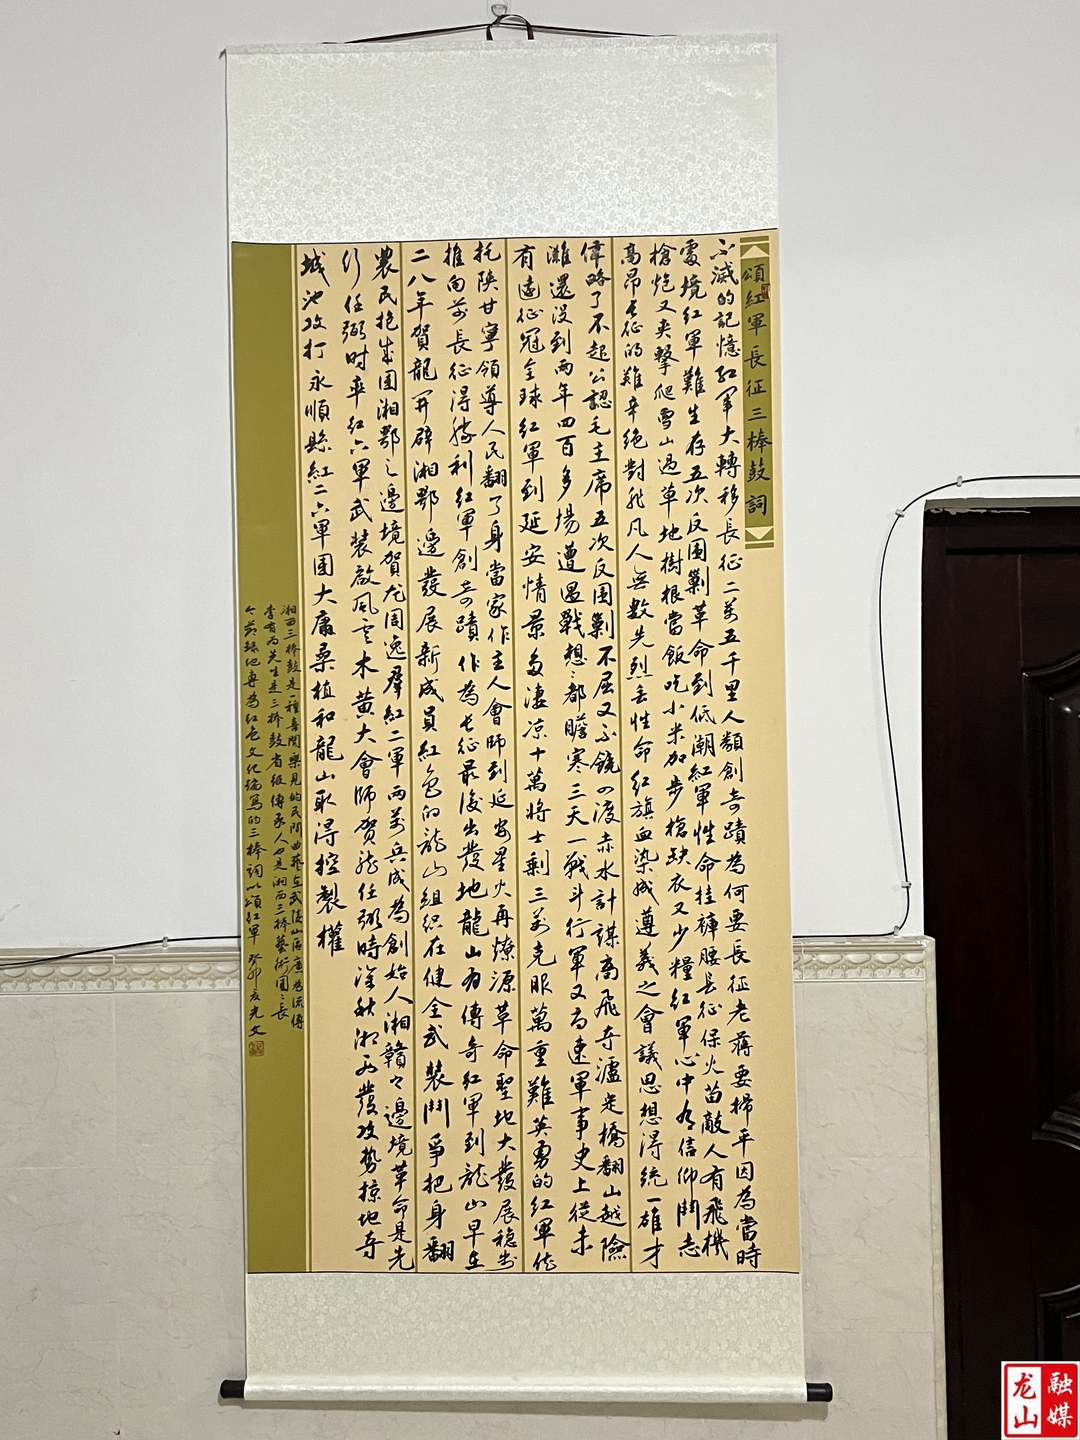 頌紅軍長征三棒鼓詞
不滅的記憶紅軍大轉移長征二萬五千里人類創奇蹟為何要長征老蔣要掃平因為當時
處境紅軍難生存五次反圍剿革命到低潮紅軍性命挂褲腰長征保火苗敵人有飛機
槍炮又夾擊爬雪山過草地樹根當飯吃小米加步槍缺衣又少糧紅軍心中有信仰鬥志
高昂長征的難辛絕對非凡人無數先烈丟性命紅旗血染成遵義之會議思想得統一雄才
偉略了不起公認毛主席五次反圍剿不屈又不饒四渡赤水計謀高飛奪瀘定橋翻山越險
灘還没到兩年四百多場遭遇戰想都膽寒三天一戰斗行軍又高速軍事史上從未
有遠征冠全球紅軍到延安情景多凄凉十萬將士剩三萬克服萬重難英勇的紅軍依
托陝甘寧領導人民翻了身當家作主人會師到延安星火再燎源革命聖地大發展穩步
推向前長征得勝利紅軍創奇蹟作為長征最後出發地龍山為傳奇紅軍到龍山早在
二八年賀龍開辟湘鄂邊發展新成員紅色的龍山組织在健全武裝鬥爭把身翻
農民抱成團湘鄂之邊境賀龙周逸羣紅二軍兩萬兵成為創始人湘贛之邊境革命是先
行任弼时率红六軍武装敵風雲木黄大會师賀龙任弼時深秋湘西發攻势掠地夺
城池攻打永順縣紅二六軍團大庸桑植和龍山取得控製權
湘西三棒鼓是一種喜聞樂見的民間曲藝在武陵山區廣为流傳
李有為先生是三棒鼓省级傳承人也是湘西三棒藝術團團長
今茲録他專為紅色文化编寫的三棒詞以頌紅軍 癸卯友光文
龙山
融媒